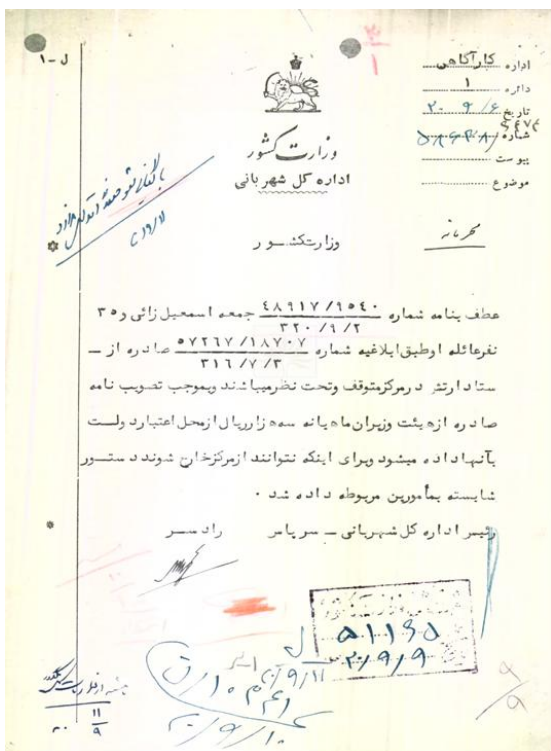 ل-۱
اداره کارآگاهی
دائره ۱
تاریخ ۲۰-۹/۶
شماره
پیوست
موضوع
وزارت کشور
اداره کل شهربانی
محرمانه
وزارتکشور
عطف بنامه شماره ٤٨٩١٧/٩٥٤٠ جمعه اسمعیل زائی و ۳۵
۳۲۰/۹/۲
نفرعائله اوطبق ابلاغیه شماره ٥٧٢٦٧/١٨٧٠٧ صادره از ـ
۳۱۶/۷/۳
ستاد ارتش درمرکزمتوقف وتحت نظرمیباشند وبموجب تصویب نامه
صادره ازهیئت وزیران ماهیانه سه هزارریال ازمحل اعتبار دولت
بآنهاداده میشود وبرای اینکه نتوانند ازمرکزخارج شوند دستور
شایسته بمأمورین مربوطه داده شد ۰
رئیس اداره کل شهربانی ـ سرپاس رادسر
۵۱۱۶۵
۲۰/۹/۹
۲۰/۹/۱۱
۲۰/۹/۱۰
۹/۹
۱۱/۹